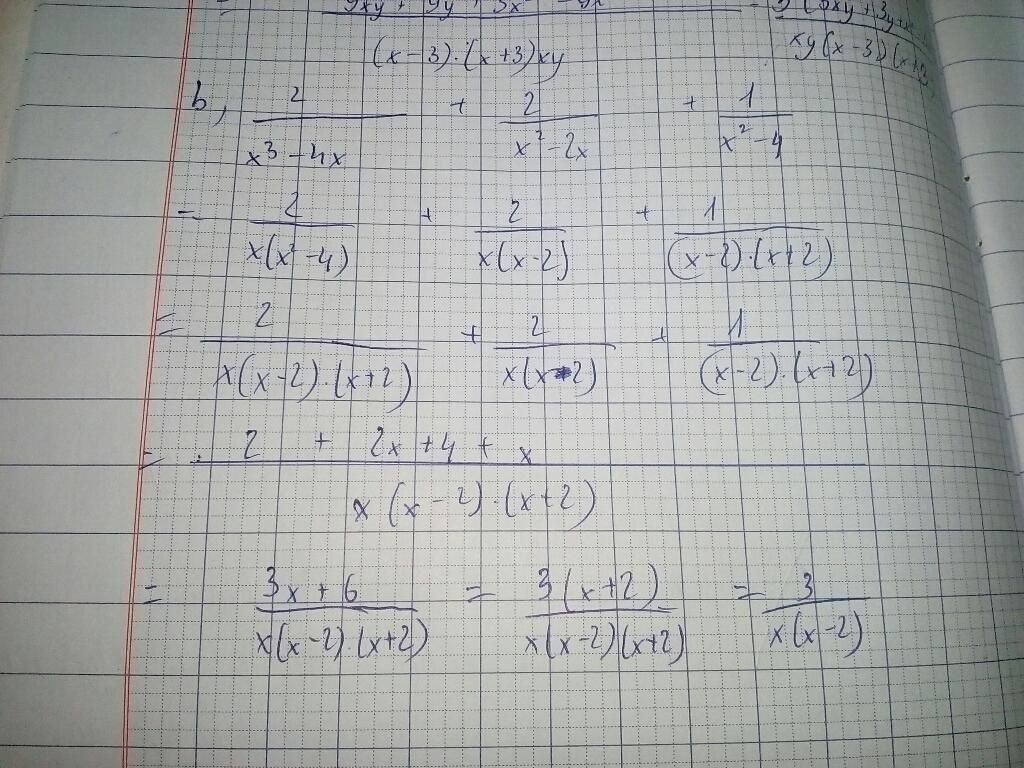 (x-3).(x+3)xy
xy(x-3)(x+3)
b, 2/(x³-4x) + 2/(x²-2x) + 1/(x²-4)
= 2/(x(x²-4)) + 2/(x(x-2)) + 1/((x-2).(x+2))
= 2/(x(x-2).(x+2)) + 2/(x(x-2)) + 1/((x-2).(x+2))
= (2 + 2x+4 + x)/(x(x-2).(x+2))
= (3x+6)/(x(x-2).(x+2)) = 3(x+2)/(x(x-2)(x+2)) = 3/(x(x-2))